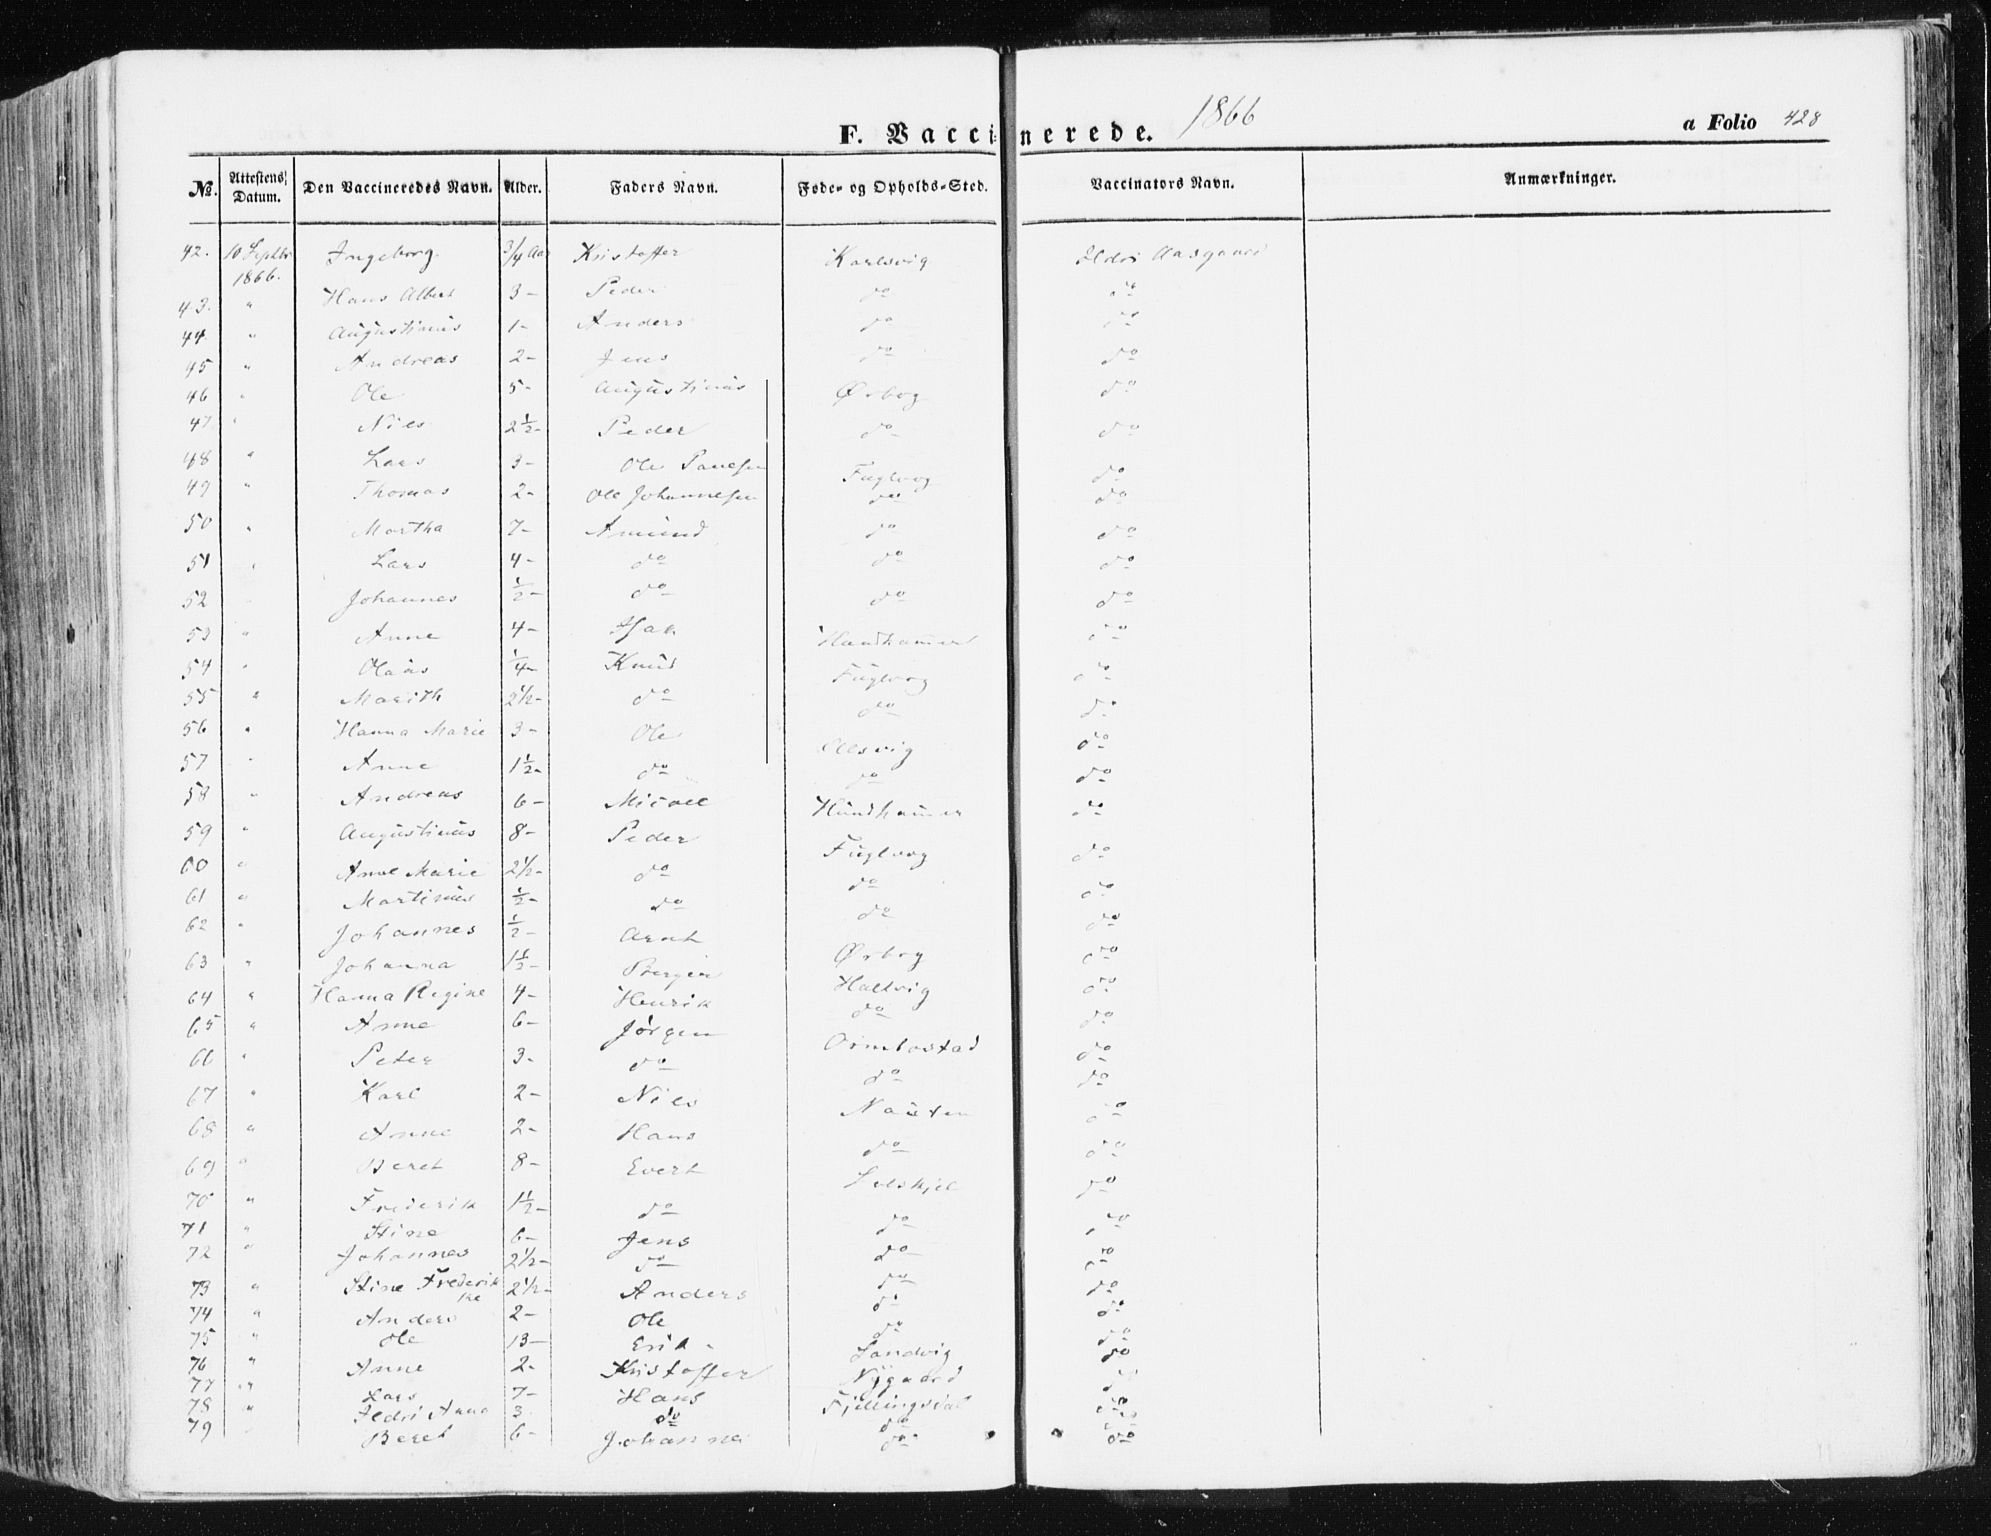 F. Vaccinerede. 1866 a Folio 428
No. Attestens Datum. Den Vaccineredes Navn. Alder. Faders Navn. Føde- og Opholds-Sted. Vaccinators Navn. Anmærkninger.
42. 10 Septbr 1866. Ingeborg 3/4 Aar Kristoffer Karlsvig Ildri Aasgaard
43. " Hans Albert 3- Peder do do
44. " Augustinus 1- Anders do do
45 " Andreas 2- Jens do do
46 " Ole 5- Augustinus Ørbog do
47 " Nils 2½- Peder do do
48 " Lars 3- Ole Fuglvog do
49 " Thomas 2- Ole Johannesen do do
50 " Martha 7- Amund do do
51 " Lars 4- do do do
52 Johannes ½- do do do
53 " Anne 4- Isak Hundhammer do
54 " Olaus ¼- Knud Fuglvog do
55 " Marith 2½- do do do
56 " Hanna Marie 3- Ole do
57 " Anne 1½- do do do
58 " Andreas 6- Micael Hundhammer do
59 " Augustinus 8- Peder Fuglvog do
60 " Anne Marie 2½- do do do
61 " Martinus ½- do do do
62 " Johannes ½- Arnt Ørbog do
63 " Johanna 1½- Halsvig do
64 " Hanna Regine 4- Henrik do do
65 " Anne 6- Jørgen do
66 " Peter 3- do do do
67 " Karl 2- Nils Nausten do
68 " Anne 2- Hans do do
69 " Beret 8- Evert do
70 " Frederik 1½- do do do
71 " Stine 6- Jens do do
72 " Johannes 2½- do do do
73 " Stine Frederikke 2½- Anders do do
74 " Anders 2- Ole do do
75 " Ole 13- Erik Sandvig do
76 " Anne 2- Kristoffer Nygaard do
77 " Lars 7- Hans do
78 " Ildri Anna 3- do do do
79 Beret 6- Johannes do do